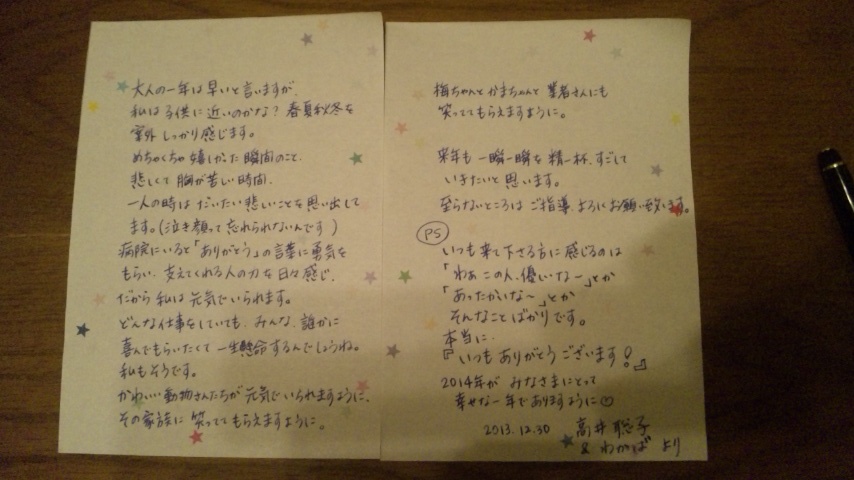 大人の一年は早いと言いますが、
私は子供に近いのかな？春夏秋冬を
案外しっかり感じます。
めちゃくちゃ嬉しかった瞬間のこと、
悲しくて胸が苦しい時間、
一人の時はだいたい悲しいことを思い出して
ます。(泣き顔って忘れられないんです)
病院にいると「ありがとう」の言葉に勇気を
もらい、支えてくれる人の力を日々感じ、
だから私は元気でいられます。
どんな仕事をしていても、みんな、誰かに
喜んでもらいたくて一生懸命するんでしょうね。
私もそうです。
かわいい動物さんたちが元気でいられますように、
その家族に笑っててもらえますように。
梅ちゃんとかまちゃんと業者さんにも
笑っててもらえますように。
来年も一瞬一瞬を精一杯、すごして
いきたいと思います。
至らないところはご指導、よろしくお願い致します。
PS
いつも来て下さる方に感じるのは
「わぁこの人、優しいな～」とか
「あったかいな～」とか
そんなことばかりです。
本当に、
『いつもありがとうございます！』
2014年がみなさまにとって
幸せな一年でありますように♡
2013.12.30 高井聡子
& わかば より